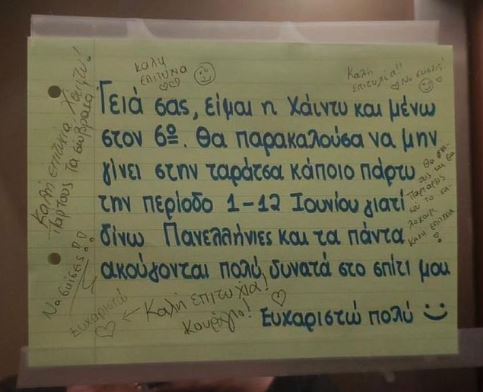 Καλή
επιτυχία
Καλή
επιτυχία!!
Να σκίσεις!
Γειά σας, είμαι η Χάιντυ και μένω
στον 6º. Θα παρακαλούσα να μην
γίνει στην ταράτσα κάποιο πάρτυ
την περίοδο 1-12 Ιουνίου γιατί
δίνω Πανελλήνιες και τα πάντα
ακούγονται πολύ δυνατά στο σπίτι μου
Ευχαριστώ πολύ
Καλή επιτυχία Χάιντυ!
Να σκίσεις!!
Ευχαριστώ!
Καλή επιτυχία!
Κουράγιο!
Καλή επιτυχία